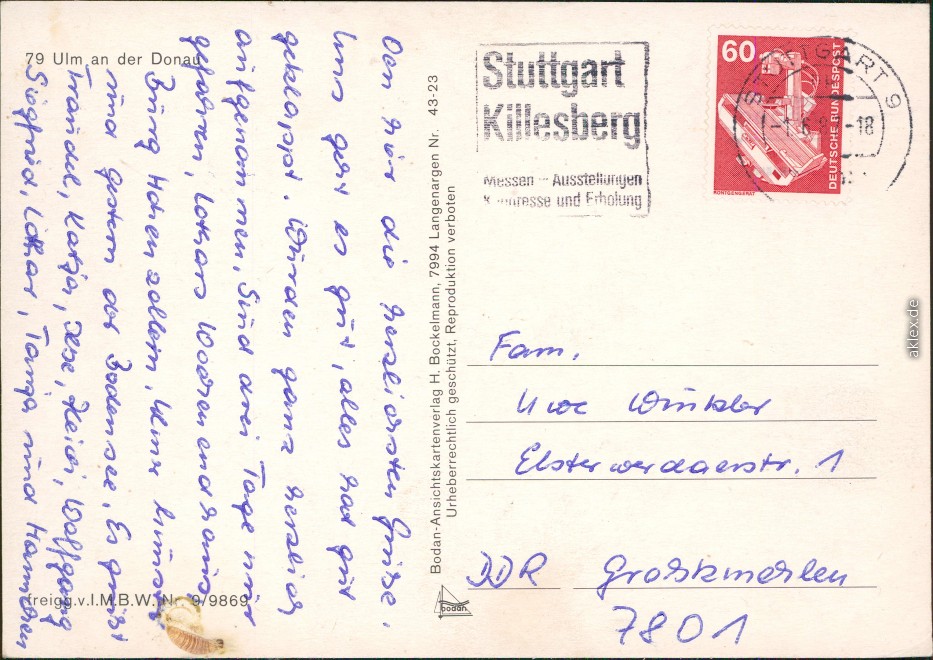 79 Ulm an der Donau
Von hier die herzlichsten Grüße.
Uns geht es gut, alles hat gut
geklappt. Wurden ganz herzlich
aufgenommen, sind drei Tage nur
gefahren, Lothars Wochenendhaus
Burg Hohenzollern, Ulmer
und gestern der Bodensee, Es grüßt
Traudel, Katja, Ilse, Heidi, Wolfgang
Siegfried, Lothar, Tanja und
freigg.v.I.M.B.W. Nr. 9/9869
Bodan-Ansichtskartenverlag H. Bockelmann, 7994 Langenargen Nr. 43-23
Urheberrechtlich geschützt, Reproduktion verboten
bodan
Stuttgart
Killesberg
Messen – Ausstellungen
Kongresse und Erholung
60
DEUTSCHE BUNDESPOST
RÖNTGENGERÄT
STUTTGART 9
-18
Fam.
Uwe Winkler
Elsterwerdaerstr. 1
DDR Großkmehlen
7801
aklex.de